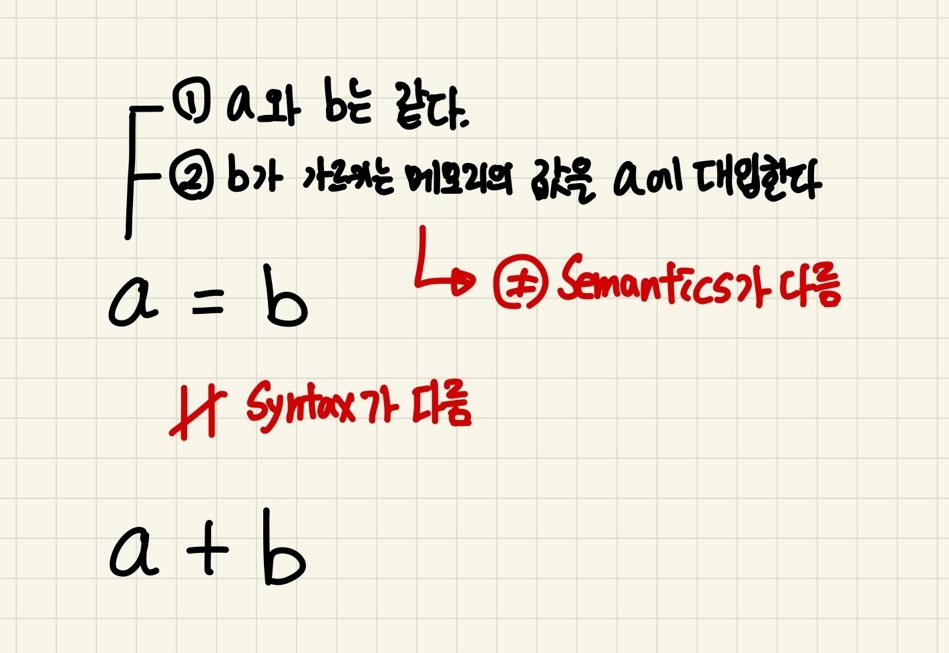 ① a와 b는 같다.
② b가 가르키는 메모리의 값을 a에 대입한다
a = b
≠ Semantics가 다름
Syntax가 다름
a + b